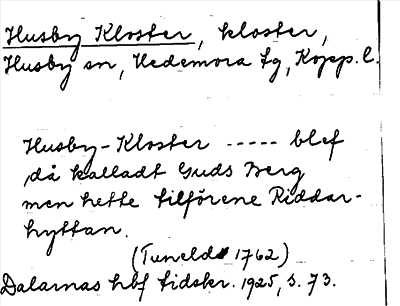 Husby Kloster, kloster,
Husby sn, Hedemora tg, Kopp. l.
Husby-Kloster ----- blef
då kalladt Guds Berg
men hette tilförene Riddar-
hyttan.
(Tuneld 1762)
Dalarnas hbf tidskr. 1925, s. 73.